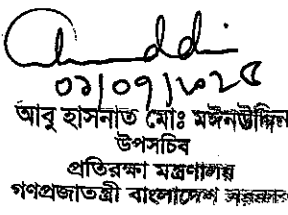 ০১/০৭/২০২৫
আবু হাসনাত মোঃ মঈনউদ্দিন
উপসচিব
প্রতিরক্ষা মন্ত্রণালয়
গণপ্রজাতন্ত্রী বাংলাদেশ সরকার